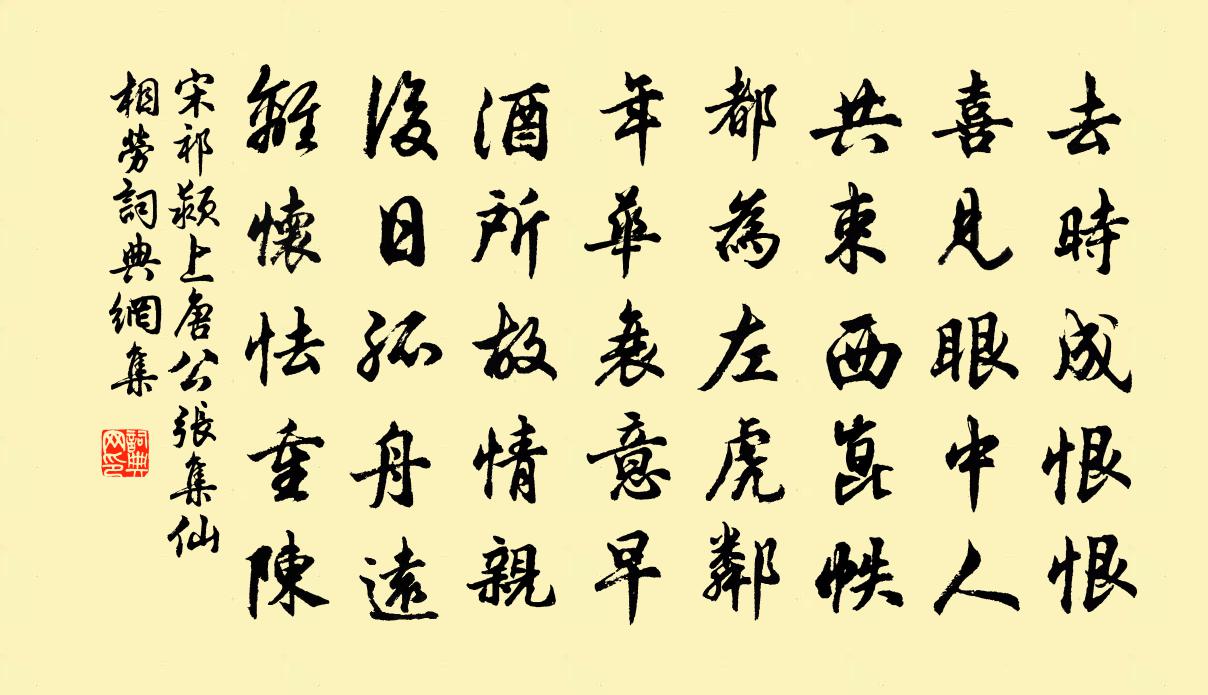 去時成恨恨
喜見眼中人
共束西崑帙
都為左虎鄰
年華衰意早
酒所故情親
後日孤舟遠
離懷怯重陳
宋祁潁上唐公張集仙
相勞詞典網集
詞典
网印